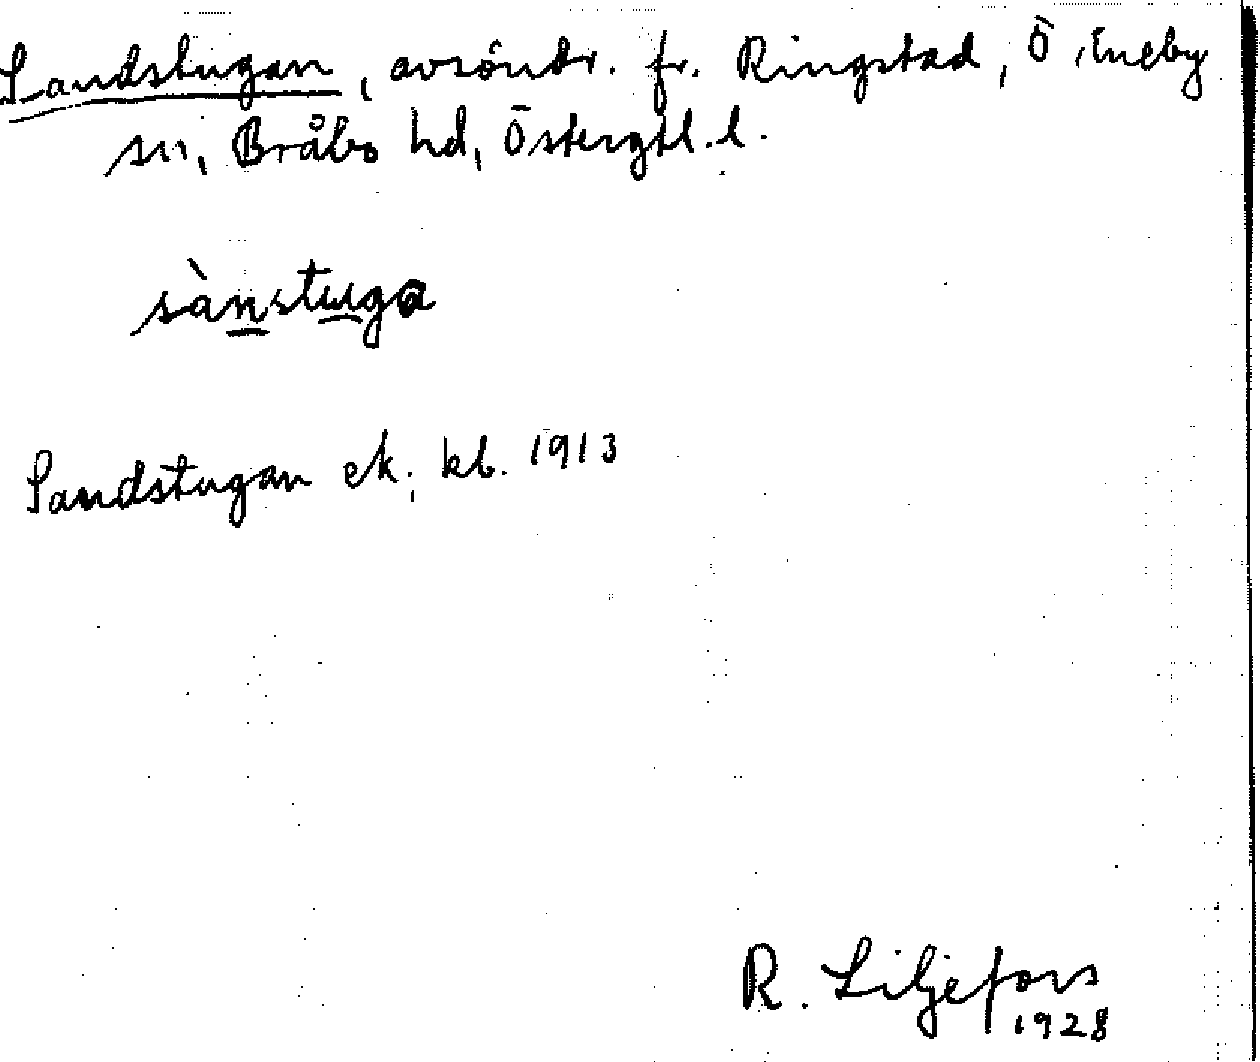 Sandstugan, avsöndr. fr. Ringstad, Ö. Eneby
sn, Bråbo hd, Östergtl. l.
sànstuga
Sandstugan ek. kb. 1913
R. Liljefors
1928